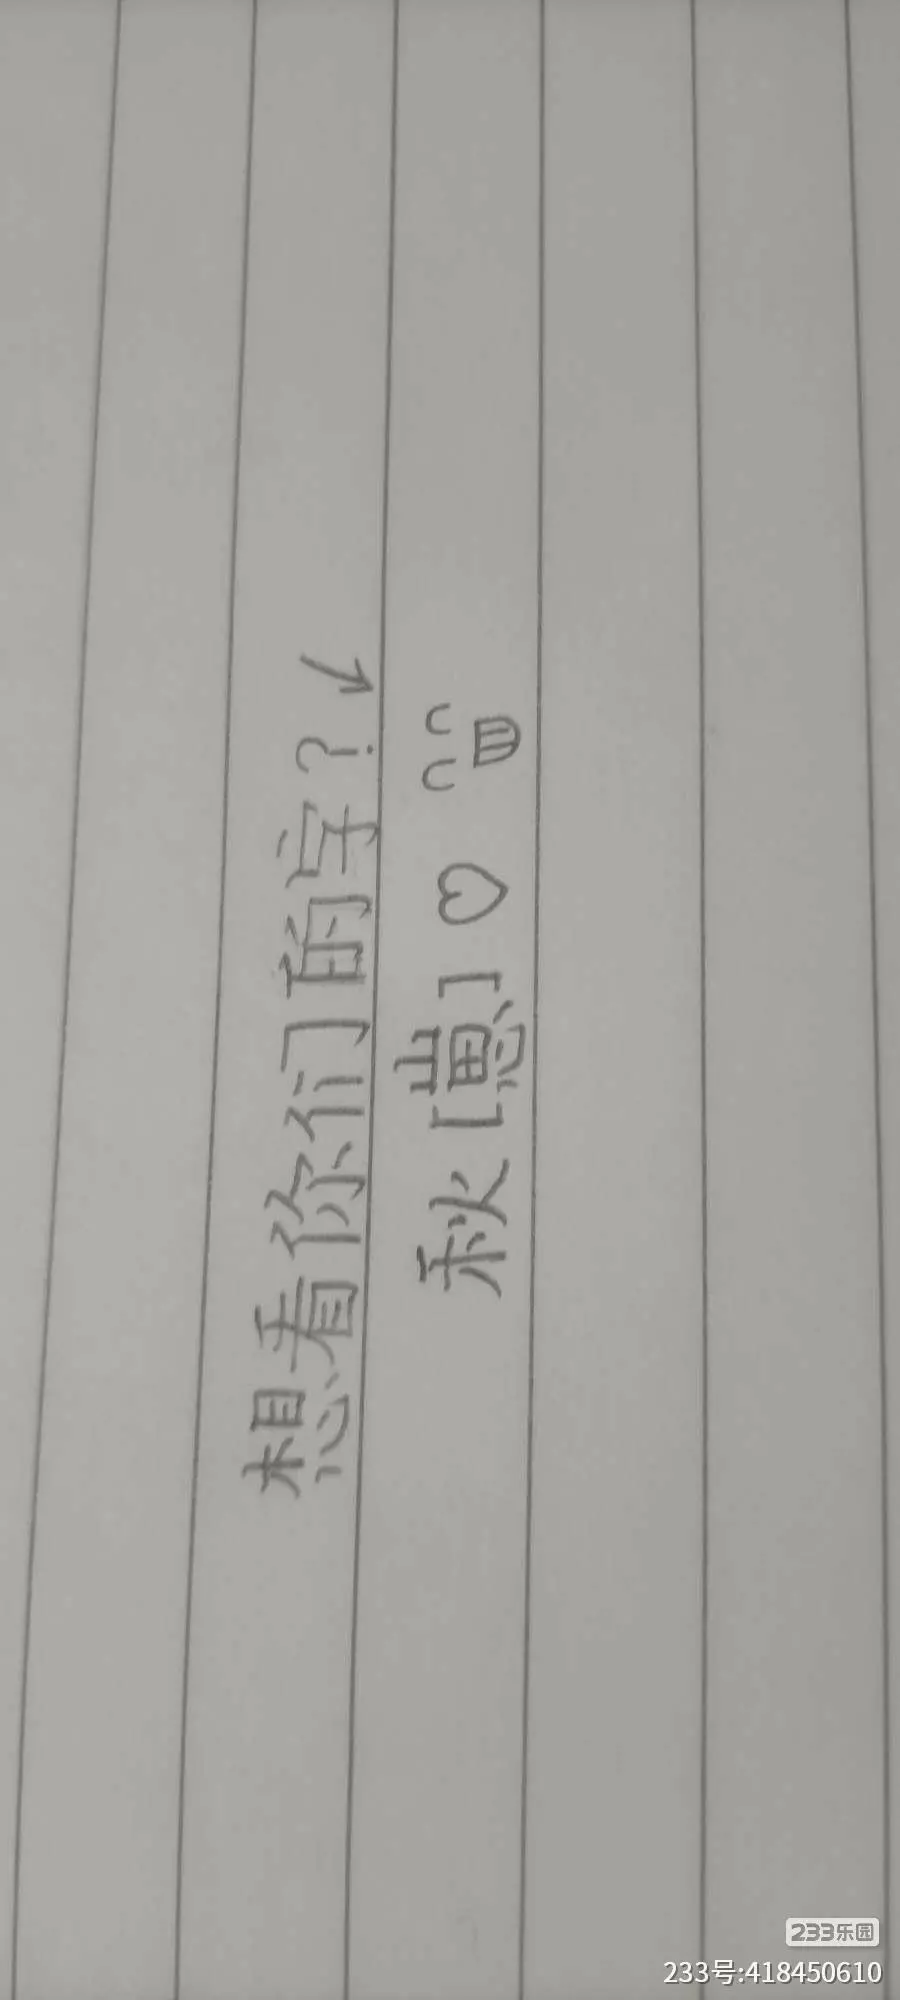 想看你们的字？↙
秋[ ]♡
233乐园
233号:418450610